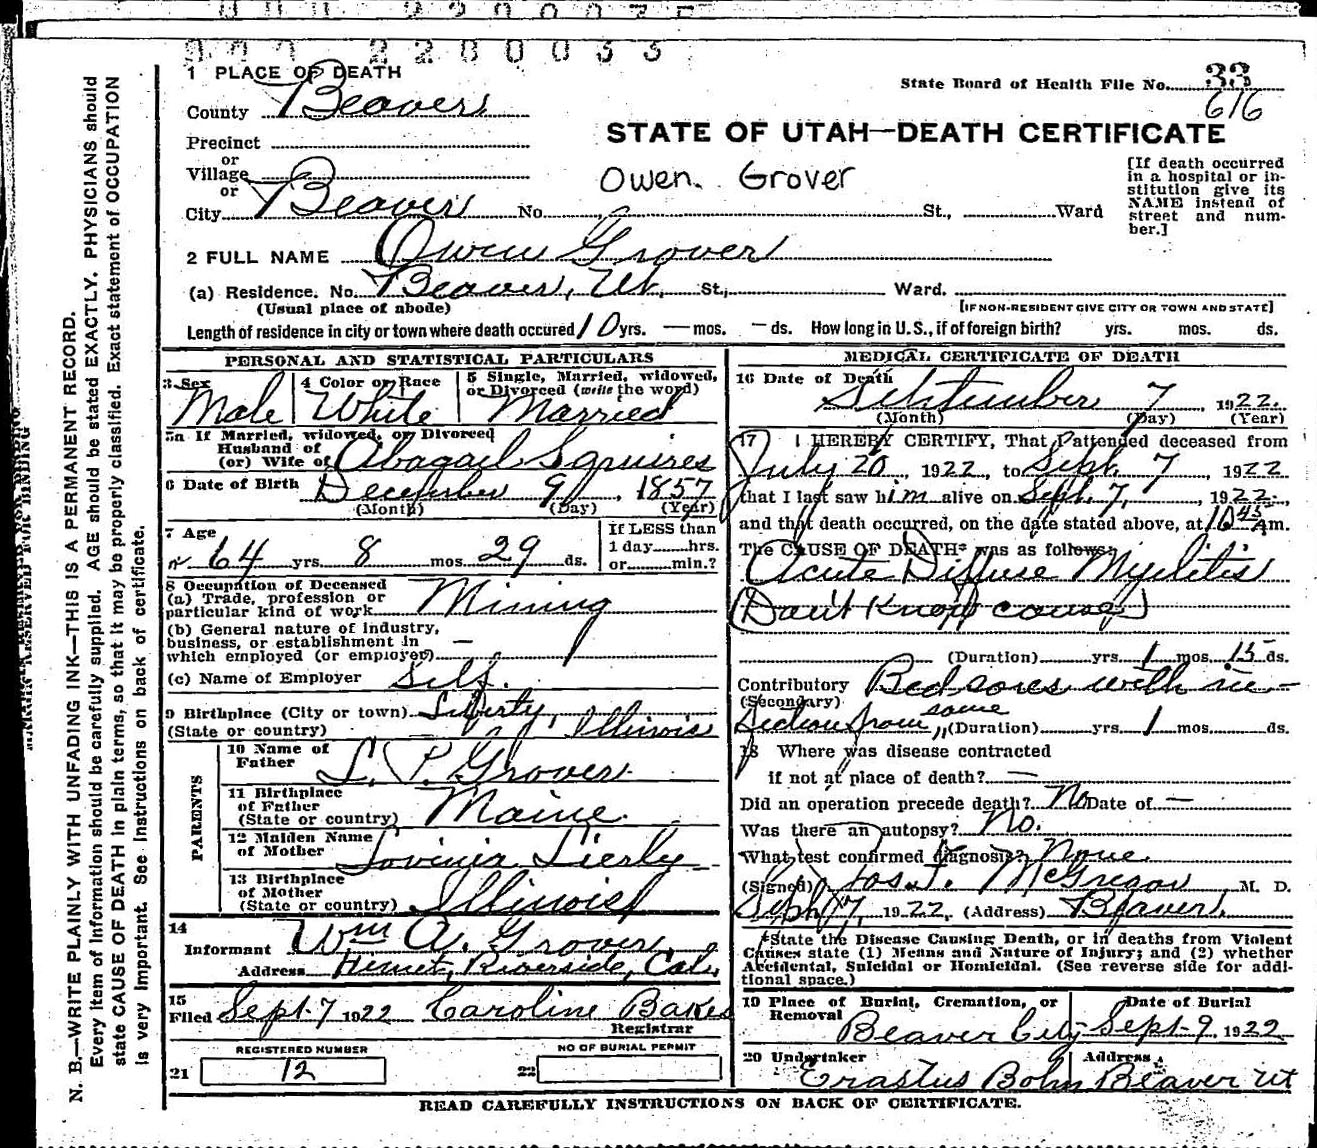 000 2200033
1 PLACE OF DEATH
State Board of Health File No. 33
616
County Beaver
STATE OF UTAH—DEATH CERTIFICATE
Precinct
or
Village
or
Owen Grover
[If death occurred in a hospital or in-
stitution give its
NAME instead of
street and num-
ber.]
City Beaver No. St., Ward
2 FULL NAME Owen Grover
(a) Residence. No. Beaver, Ut. St., Ward.
(Usual place of abode) [IF NON-RESIDENT GIVE CITY OR TOWN AND STATE]
Length of residence in city or town where death occured 10 yrs. — mos. — ds. How long in U. S., if of foreign birth? yrs. mos. ds.
PERSONAL AND STATISTICAL PARTICULARS
3 Sex Male
4 Color or Race White
5 Single, Married, widowed, or Divorced (write the word) Married
5a If Married, widowed, or Divorced
Husband of
(or) Wife of Abagail Squires
6 Date of Birth December 9, 1857
(Month) (Day) (Year)
7 Age
64 yrs. 8 mos. 29 ds.
If LESS than
1 day hrs.
or min.?
8 Occupation of Deceased
(a) Trade, profession or
particular kind of work Mining
(b) General nature of industry,
business, or establishment in —
which employed (or employer)
(c) Name of Employer Self.
9 Birthplace (City or town) Liberty,
(State or country) Illinois
PARENTS
10 Name of
Father T. P. Grover
11 Birthplace
of Father
(State or country) Maine
12 Maiden Name
of Mother Lovinia Lierly
13 Birthplace
of Mother
(State or country) Illinois
14
Informant Wm A. Grover
Address Hemet, Riverside, Cal.
15
Filed Sept. 7 1922 Caroline Bakes
Registrar
REGISTERED NUMBER
21 12
NO OF BURIAL PERMIT
22
MEDICAL CERTIFICATE OF DEATH
16 Date of Death September 7, 1922.
(Month) (Day) (Year)
17 I HEREBY CERTIFY, That I attended deceased from
July 20, 1922 to Sept. 7, 1922
that I last saw him alive on Sept. 7, 1922,
and that death occurred, on the date stated above, at 10 45 Am.
The CAUSE OF DEATH* was as follows:
Acute Diffuse Myelitis
(Don't Know cause)
(Duration) yrs. 1 mos. 15 ds.
Contributory Bed sores with in-
(Secondary)
fection from same (Duration) yrs. 1 mos. ds.
18 Where was disease contracted
if not at place of death? —
Did an operation precede death? No Date of —
Was there an autopsy? No.
What test confirmed diagnosis? None.
(Signed) Jos. T. McGregor, M. D.
Sept 7, 1922, (Address) Beaver.
*State the Disease Causing Death, or in deaths from Violent
Causes state (1) Means and Nature of Injury; and (2) whether
Accidental, Suicidal or Homicidal. (See reverse side for addi-
tional space.)
19 Place of Burial, Cremation, or
Removal Beaver City
Date of Burial
Sept. 9, 1922
20 Undertaker Address
Erastus Bohn Beaver Ut
READ CAREFULLY INSTRUCTIONS ON BACK OF CERTIFICATE.
N. B.—WRITE PLAINLY WITH UNFADING INK—THIS IS A PERMANENT RECORD.
Every item of Information should be carefully supplied. AGE should be stated EXACTLY. PHYSICIANS should
state CAUSE OF DEATH in plain terms, so that it may be properly classified. Exact statement of OCCUPATION
is very Important. See Instructions on back of certificate.